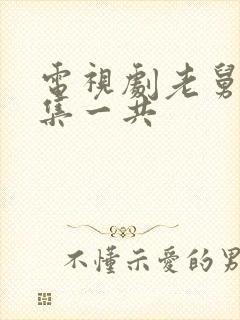 電視劇老舅
集一共
不懂示愛的男